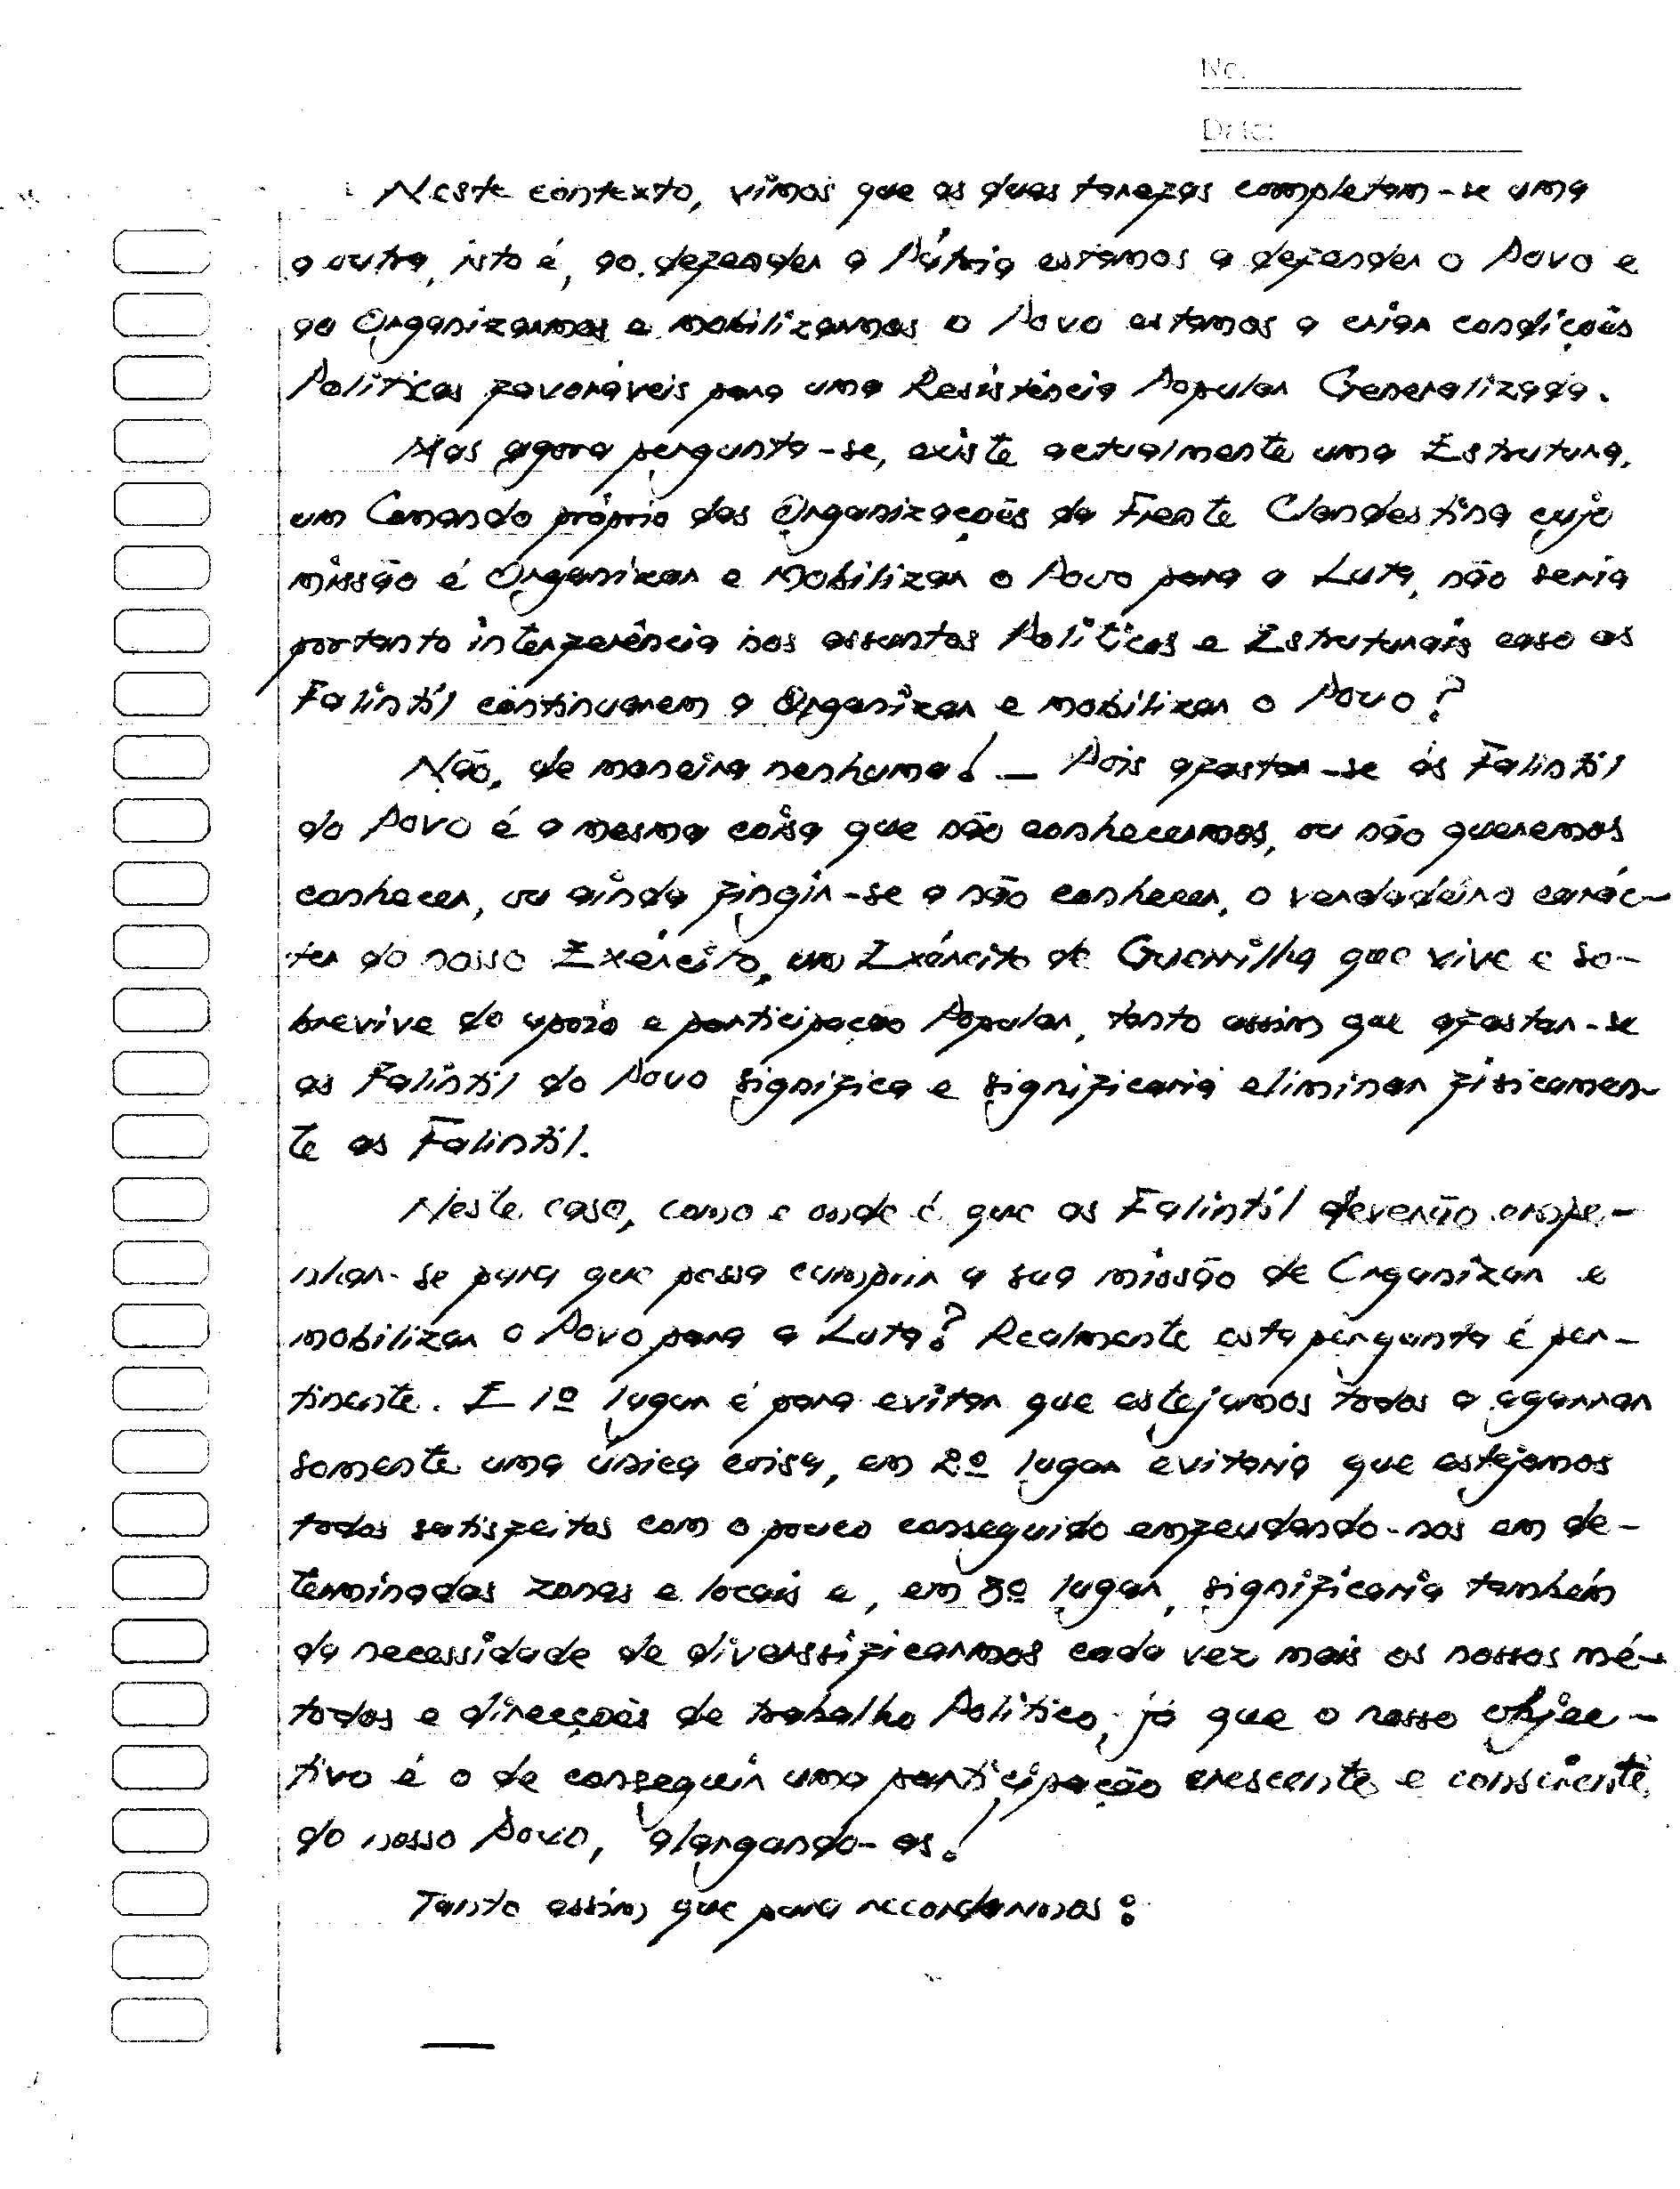 No.
Date:
Neste contexto, vimos que as duas tarefas completam-se uma
a outra, isto é, ao defender a Pátria estamos a defender o Povo e
ao Organizarmos e mobilizarmos o Povo estamos a criar condições
Políticas favoráveis para uma Resistência Popular Generalizada.
Mas agora pergunta-se, existe actualmente uma Estrutura,
um Comando próprio das Organizações da Frente Clandestina cujo
missão é Organizar e Mobilizar o Povo para a Luta, não seria
portanto interferência nos assuntos Políticos e Estruturais caso as
Falintil continuarem a Organizar e mobilizar o Povo?
Não, de maneira nenhuma! — Pois afastar-se as Falintil
do Povo é a mesma coisa que não conhecermos, ou não queremos
conhecer, ou ainda fingir-se a não conhecer, o verdadeiro carác-
ter do nosso Exército, um Exército de Guerrilha que vive e so-
brevive do apoio e participação Popular, tanto assim que afastar-se
as Falintil do Povo significa e significaria eliminar fisicamen-
te as Falintil.
Neste caso, como e onde é que as Falintil deverão empe-
nhar-se para que possa cumprir a sua missão de Organizar e
mobilizar o Povo para a Luta? Realmente esta pergunta é per-
tinente. E 1º lugar é para evitar que estejamos todos a agarrar
somente uma única coisa, em 2º lugar evitaria que estejamos
todos satisfeitos com o pouco conseguido enfeudando-nos em de-
terminadas zonas e locais e, em 3º lugar, significaria também
da necessidade de diversificarmos cada vez mais os nossos mé-
todos e direcções de trabalho Político, já que o nosso objec-
tivo é o de conseguir uma participação crescente e consciente
do nosso Povo, alargando-as!
Tanto assim que para recordarmos: